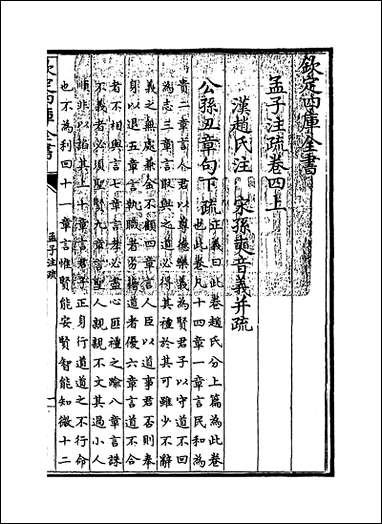 欽定四庫全書
孟子注疏卷四上
漢趙氏注　宋孫奭音義并疏
公孫丑章句下　疏
正義曰此卷趙氏分上篇為此卷
也此卷凡十四章一章言民和為
貴二章言人君以尊德樂義為賢君子以守道不回
為志三章言取與之道必得其禮於其可雖少不辭
義之無處兼金不顧四章言人臣以道事君否則奉
身以退五章言執職者劣藉道者優六章言道不合
者不相與言七章言孝必盡心匪禮之踰八章言誅
不義者必須聖賢九章言聖人親親不文其過小人
順非以諂其上十章言君子正身行道道之不行命
也不為利四十一章言惟賢能安賢智能知微十二
欽定四庫全書
孟子注疏
一